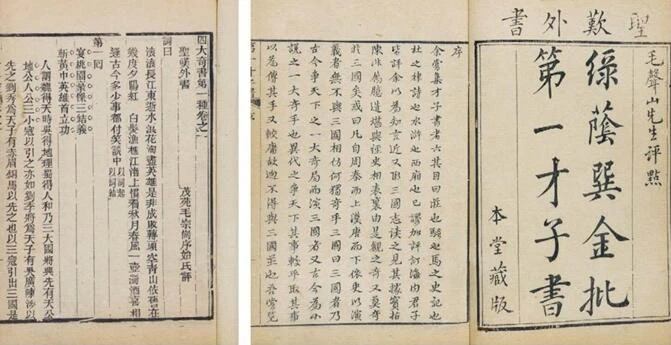 聖歎外書
毛聲山先生評點
綠蔭巽金批
第一才子書
本堂藏版
序
余嘗集才子書者六其目曰莊也騷也馬之史記也
杜之律詩也水滸也西廂也已謬加評訂海內君子
皆許余以為知言近又取三國志讀之見其據實指
陳非屬臆造堪與經史相表裏由是觀之奇又莫奇
於三國矣或曰凡自周秦而上漢唐而下依史以演
義者無不與三國相仿何獨奇乎三國曰三國者乃
古今爭天下之一大奇局而演三國者又古今為小
說之一大奇手也異代之爭天下其事較平取其事
以為傳其手又較庸故迥不得與三國並也吾嘗覽
四大奇書第一種卷之一
聖歎外書
茂苑毛宗崗序始氏評
詞曰
滾滾長江東逝水浪花淘盡英雄是非成敗轉頭空青山依舊在
幾度夕陽紅 白髮漁樵江渚上慣看秋月春風一壺濁酒喜相
逢古今多少事都付笑談中 以詞起 以詞結
第一回
宴桃園豪傑三結義
斬黃巾英雄首立功
人謂魏得天時吳得地理蜀得人和乃三大國將興先有天公
地公人公三小寇以引之亦如劉季將為天子有吳廣陳涉以
先之劉秀將為天子有赤眉銅馬以先之也以三寇引出三國是